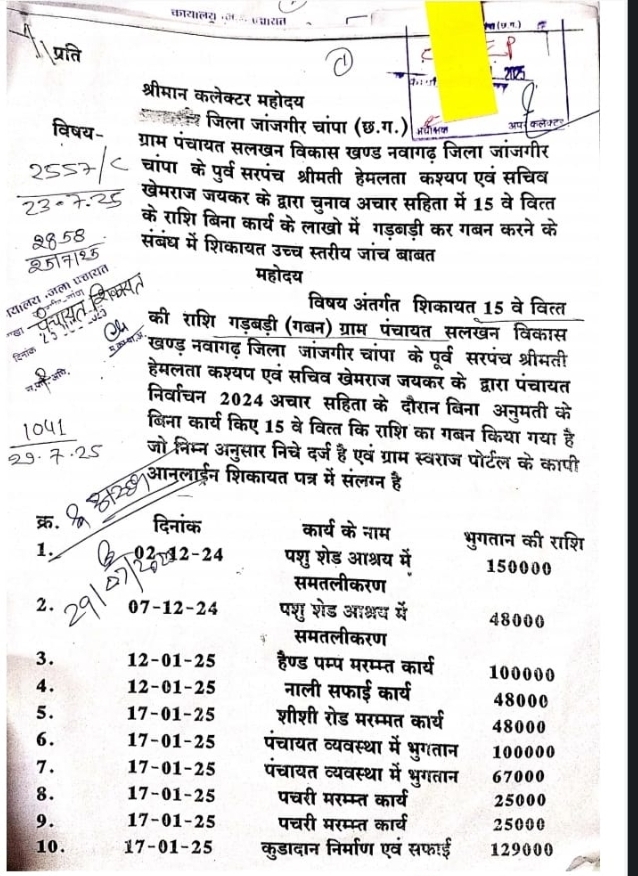 कार्यालय
पंचायत
(छ.ग.)
प्रति
1
2025
श्रीमान कलेक्टर महोदय
जिला जांजगीर चांपा (छ.ग.)
अधीक्षक
अपर कलेक्टर
विषय-
ग्राम पंचायत सलखन विकास खण्ड नवागढ़ जिला जांजगीर
चांपा के पुर्व सरपंच श्रीमती हेमलता कश्यण एवं सचिव
खेमराज जयकर के द्वारा चुनाव अचार सहिता में 15 वे वित्त
के राशि बिना कार्य के लाखो में गड़बड़ी कर गबन करने के
संबंध में शिकायत उच्च स्तरीय जांच बाबत
2557/C
23-7-25
2858
25/7/25
महोदय
विषय अंतर्गत शिकायत 15 वे वित्त
की राशि गड़बड़ी (गबन) ग्राम पंचायत सलखन विकास
खण्ड नवागढ़ जिला जांजगीर चांपा के पूर्व सरपंच श्रीमती
हेमलता कश्यण एवं सचिव खेमराज जयकर के द्वारा पंचायत
निर्वाचन 2024 अचार सहिता के दौरान बिना अनुमती के
बिना कार्य किए 15 वे वित्त कि राशि का गबन किया गया है
जो निम्न अनुसार निचे दर्ज है एवं ग्राम स्वराज पोर्टल के कापी
आनलाईन शिकायत पत्र में संलग्न है
पंचायत शिकायत
दिनांक
1041
29.7.25
29/07/2025
क्र. दिनांक कार्य के नाम भुगतान की राशि
1. 02-12-24 पशु शेड आश्रय में 150000
समतलीकरण
2. 07-12-24 पशु शेड आश्रय में 48000
समतलीकरण
3. 12-01-25 हैण्ड पम्प मरम्त कार्य 100000
4. 12-01-25 नाली सफाई कार्य 48000
5. 17-01-25 शीशी रोड मरम्मत कार्य 48000
6. 17-01-25 पंचायत व्यवस्था में भुगतान 100000
7. 17-01-25 पंचायत व्यवस्था में भुगतान 67000
8. 17-01-25 पचरी मरम्त कार्य 25000
9. 17-01-25 पचरी मरम्त कार्य 25000
10. 17-01-25 कुडादान निर्माण एवं सफाई 129000